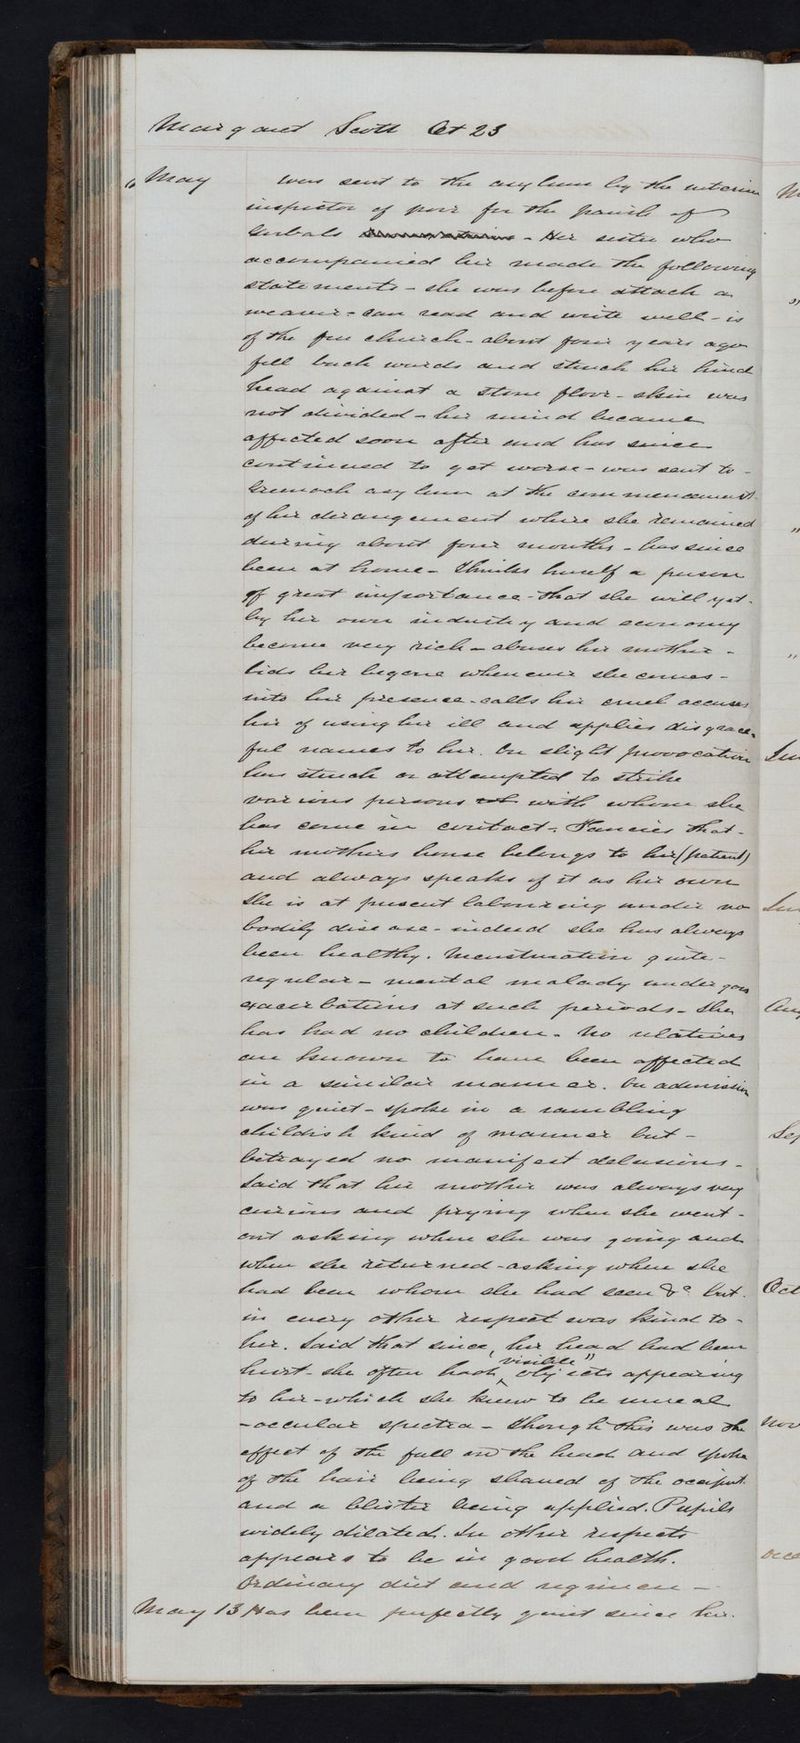 Margaret Scott Æt 23
May was sent to the asylum by the interim
inspector of poor for the parish of
Gorbals - Her sister who
accompanied her made the following
statements - she was before attack a
weaver - can read and write well - is
of the free church - about four years ago
fell backwards and struck her hind
head against a stone floor - skin was
not divided - her mind became
affected soon after and has since
continued to get worse - was sent to
Greenock asylum at the commencement
of her derangement where she remained
during about four months - has since
been at home - thinks herself a person
of great importance - that she will yet
by her own industry and economy
become very rich - abuses her mother -
bids her begone whenever she comes -
into her presence - calls her cruel accuses
her of using her ill and applies disgrace-
ful names to her. On slight provocation
has struck or attempted to strike
various persons with whom she
has come in contact. Fancies that
her mothers house belongs to her (patient)
and always speaks of it as her own
She is at present labouring under no
bodily disease - indeed she has always
been healthy. Menstruation quite -
regular - mental malady undergoes
exacerbations at such periods - She
has had no children - No relatives
are known to have been affected
in a similar manner. On admission
was quiet - spoke in a rambling
childish kind of manner but -
betrayed no manifest delusions -
Said that her mother was always very
curious and prying when she went -
out asking where she was going and
when she returned - asking where she
had been whom she had seen &c but
in every other respect was kind to -
her. Said that since her head had been
hurt - she often had "visible" objects appearing
to her - which she knew to be unreal
- occular spectra - though this was the
effect of the fall on the head and spoke
of the hair being shaved of the occiput
and a blister being applied. Pupils
widely dilated. In other respects
appears to be in good health.
Ordinary diet and regimen -
May 13 Has been perfectly quiet since her